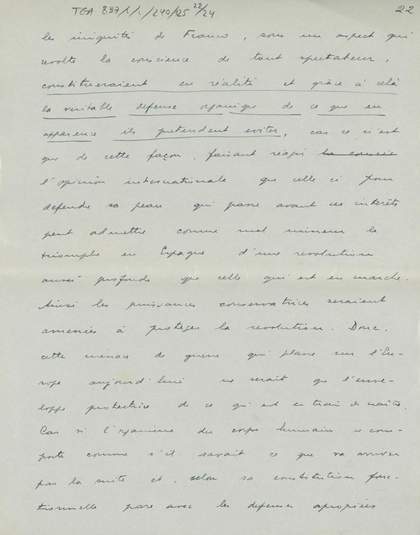 TGA 897/1/1/240/25 23/24
22
les iniquités de Franco, sous un aspect qui
révolte la conscience de tout spectateur,
constitueraient en réalité et grâce à cela
la véritable défense organique de ce que en
apparence ils prétendent éviter, car ce n'est
que de cette façon, faisant réagir
l'opinion internationale que celle ci pour
défendre sa peau qui passe avant ses intérêts
peut admettre comme mal mineur le
triomphe en Espagne d'une revolution
aussi profonde que celle qui est en marche.
Ainsi les puissances conservatrices seraient
amenées à protéger la revolution. Donc,
cette menace de guerre qui plane sur l'Eu-
rope aujourd'hui ne serait que l'enve-
loppe protectrice de ce qui est en train de naître
Car si l'organisme du corps humain se com-
porte comme s'il savait ce que va arriver
par la suite et, selon sa constitution fonc-
tionnelle pare avec les defenses apropiées